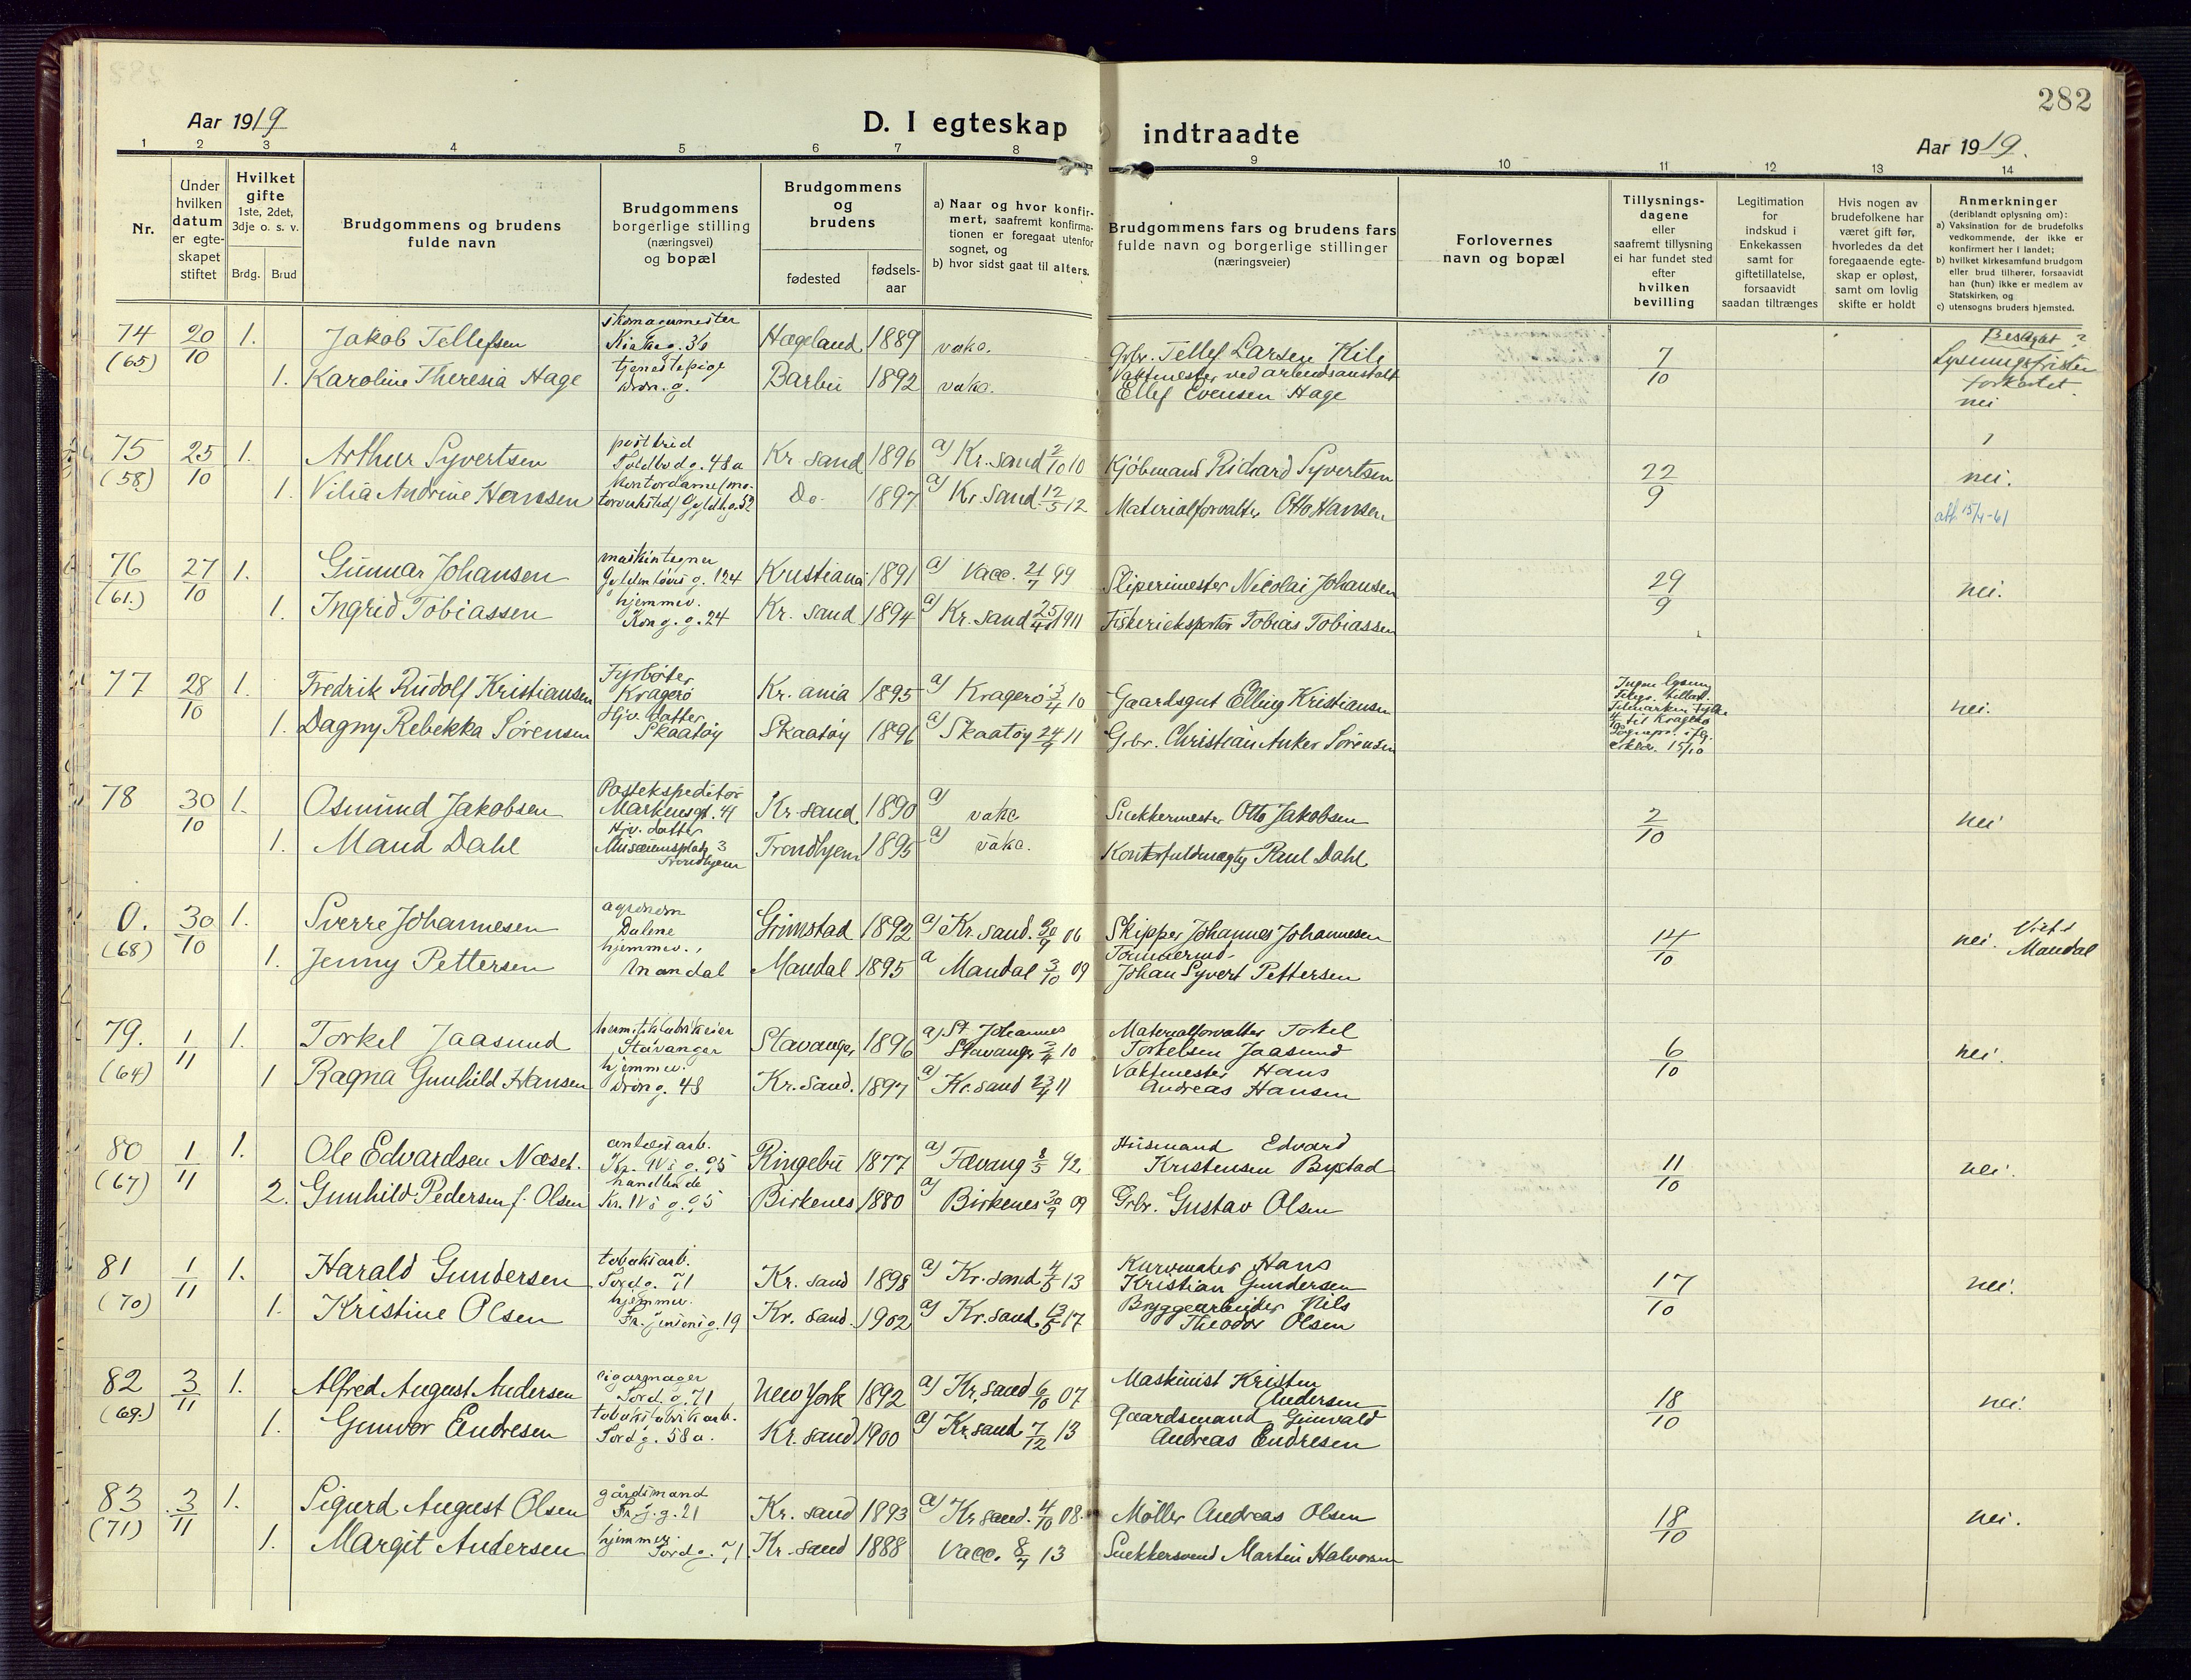 282
Aar 1919
D. I egteskap indtraadte
Aar 1919.
1 2 3 4 5 6 7 8 9 10 11 12 13 14
Nr.
Under hvilken datum er egteskapet stiftet
Hvilket gifte
1ste, 2det, 3dje o. s. v.
Brdg. Brud
Brudgommens og brudens fulde navn
Brudgommens borgerlige stilling (næringsvei) og bopæl
Brudgommens og brudens
fødested
fødsels-aar
a) Naar og hvor konfirmert, saafremt konfirmationen er foregaat utenfor sognet, og
b) hvor sidst gaat til alters.
Brudgommens fars og brudens fars fulde navn og borgerlige stillinger (næringsveier)
Forlovernes navn og bopæl
Tillysningsdagene eller saafremt tillysning ei har fundet sted efter hvilken bevilling
Legitimation for indskud i Enkekassen samt for giftetillatelse, forsaavidt saadan tiltrænges
Hvis nogen av brudefolkene har været gift før, hvorledes da det foregaaende egteskap er opløst, samt om lovlig skifte er holdt
Anmerkninger
(deriblandt oplysning om):
a) Vaksination for de brudefolks vedkommende, der ikke er konfirmert her i landet;
b) hvilket kirkesamfund brudgom eller brud tilhører, forsaavidt han (hun) ikke er medlem av Statskirken, og
c) utensogns bruders hjemsted.
74 (65) 20/10 1. Jakob Tellefsen skomagermester Hægeland 1889 vake. Grbr. Tellef Larsen Kile 7/10
1. Karoline Theresia Hage tjenestepige Dron. g. Barbu 1892 vake. Vaktmester ved arbeidsanstalt Ellef Evensen Hage Lysningsfristen forkortet nei
75 (58) 25/10 1. Arthur Syvertsen postbud Toldbodg. 48a Kr. sand 1896 a) Kr. sand 2/10 10 Kjøbmand Richard Syvertsen 22/9 nei.
1. Vilia Andrine Hansen Kontordame Gyldlg. 52 Do. 1897 a) Kr. sand 12/5 12 Materialforvalter Otto Hansen
76 (61.) 27/10 1. Gunnar Johansen maskintegner Gyldenløves g. 124 Kristiania 1891 a) Vacc. 21/7 99 Sliperimester Nicolai Johansen 29/9 nei.
1. Ingrid Tobiassen hjemmev. Kong. g. 24 Kr. sand 1894 a) Kr. sand 25/4 1911 Fiskerieksportør Tobias Tobiassen
77 28/10 1. Fredrik Rudolf Kristiansen Fyrbøter Kragerø Kr. ania 1895 a) Kragerø 3/4 10 Gaardsgut Elling Kristiansen nei.
1. Dagny Rebekka Sørensen Hjv. datter Skaatøy Skaatøy 1896 a) Skaatøy 24/9 11 Grbr. Christian Anker Sørensen 15/10
78 30/10 1. Osmund Jakobsen Postekspeditør Markensgt. 41 Kr. sand 1890 a) vake Snekkermester Otto Jakobsen 2/10 nei
1. Maud Dahl Hjv. datter Museumsplads 3 Trondhjem Trondhjem 1895 a) vake. Kontorfuldmægtig Paul Dahl
0. (68) 30/10 1. Sverre Johannesen agronom Dalene Grimstad 1892 a) Kr. sand. 30/9 06 Skipper Johannes Johannesen 14/10 nei. Viet i Mandal
1. Jenny Pettersen hjemmev. Mandal Mandal 1895 a Mandal 3/10 09 Tømmermd. Johan Syvert Pettersen
79. (64) 1/11 1. Torkel Jaasund hermetikfabrikeier Stavanger Stavanger 1896 a) St. Johannes Stavanger 3/4 10 Materialforvalter Torkel Torkelsen Jaasund 6/10 nei.
1 Ragna Gunhild Hansen hjemmev. Dron g. 48 Kr. Sand. 1897 a) Kr. sand 23/4 11 Vaktmester Hans Andreas Hansen
80 (67) 1/11 1. Ole Edvardsen Næset. anlegsarb. Kr. IV's g. 95 Ringebu 1877 a) Fævang 8/5 92 Husmand Edvard Kristensen Bystad 11/10 nei.
2. Gunhild Pedersen f. Olsen handlende Kr. IV's g. 95 Birkenes 1880 a) Birkenes 30/9 09 Grbr. Gustav Olsen
81 (70) 1/11 1. Harald Gundersen tobaksarb. Tord. g. 71 Kr. sand 1898 a) Kr. sand 4/5 13 Kurvmaker Hans Kristian Gundersen 17/10 nei.
1. Kristine Olsen hjemmev. Kr. sand. 1902 a) Kr. sand. 13/5 17 Bryggearbeider Nils Theodor Olsen
82 (69.) 3/11 1. Alfred August Andersen cigarmager Tord. g. 71 New York 1892 a) Kr. sand 6/10 07 Maskinist Kristen Andersen 18/10 nei.
1. Gunvor Endresen tobaksfabrikarb. Tord g. 58a. Kr. sand 1900 a) Kr. sand 7/12 13 Gaardsmand Gunvald Andreas Endresen
83 (71) 3/11 1. Sigurd August Olsen gårdsmand g. 21 Kr. sand 1893 a) Kr sand. 4/10 08. Møller Andreas Olsen 18/10 nei.
1. Margit Andersen hjemmev. Tord g. 71 Kr. sand 1888 Vacc. 8/7 13 Snekkersvend Martin Halvorsen